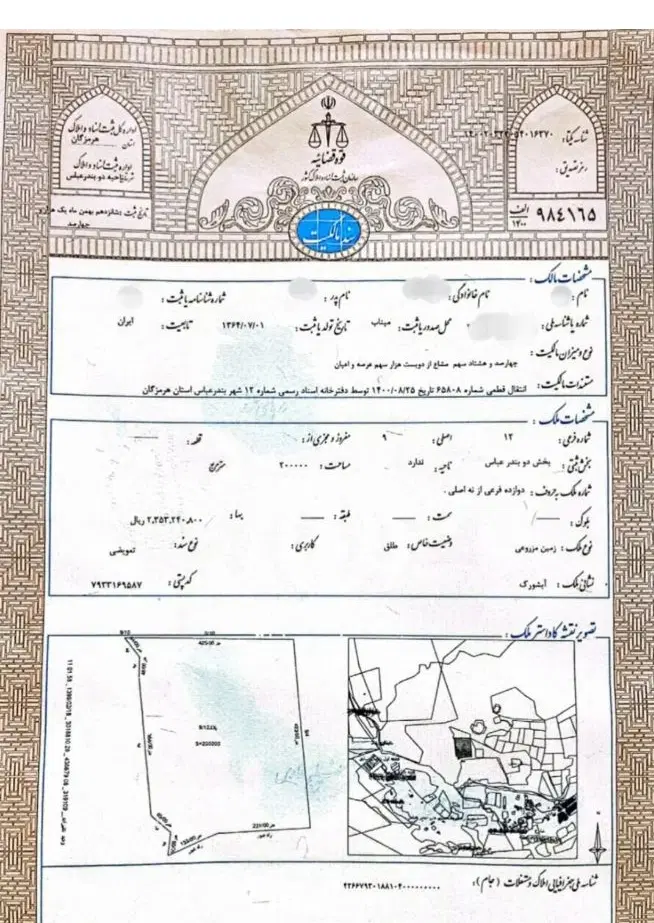 قوه قضائیه
سازمان ثبت اسناد و املاک کشور
سند مالکیت
اداره کل ثبت اسناد و املاک
استان هرمزگان
اداره ثبت اسناد و املاک
ناحیه دو بندرعباس
تاریخ ثبت : شانزدهم بهمن ماه یک هزار و
چهارصد
شناسه یکتا :
رمز تصدیق :
الف ۱۴۰۰ ۹۸۴۱۶۵
مشخصات مالک :
نام : نام خانوادگی : نام پدر : شماره شناسنامه یا ثبت :
شماره یا شناسه ملی : محل صدور یا ثبت : میناب تاریخ تولد یا ثبت : ۱۳۶۴/۰۷/۰۱ تابعیت : ایران
نوع و میزان مالکیت :
چهارصد و هشتاد سهم مشاع از دویست هزار سهم عرصه و اعیان
مستندات مالکیت : انتقال قطعی شماره ۶۵۸۰۸ تاریخ ۱۴۰۰/۰۸/۲۵ توسط دفترخانه اسناد رسمی شماره ۱۲ شهر بندرعباس استان هرمزگان
مشخصات ملک :
شماره فرعی : ۱۲ اصلی : ۹ مفروز و مجزی از : قطعه :
بخش ثبتی : بخش دو بندر عباس ناحیه : ندارد مساحت : ۲۰۰۰۰۰ مترمربع
شماره ملک به حروف : دوازده فرعی از نه اصلی .
بلوک : سمت : طبقه : بها : ۲,۳۵۳,۲۴۰,۸۰۰ ریال
نوع ملک : زمین مزروعی وضعیت خاص : طلق کاربری : نوع سند : تعویضی
نشانی ملک : آبشورک کدپستی : ۷۹۳۳۱۶۹۵۸۷
تصویر نقشه کاداستر ملک :
شناسه ملی جغرافیایی املاک و مستغلات (جام) :